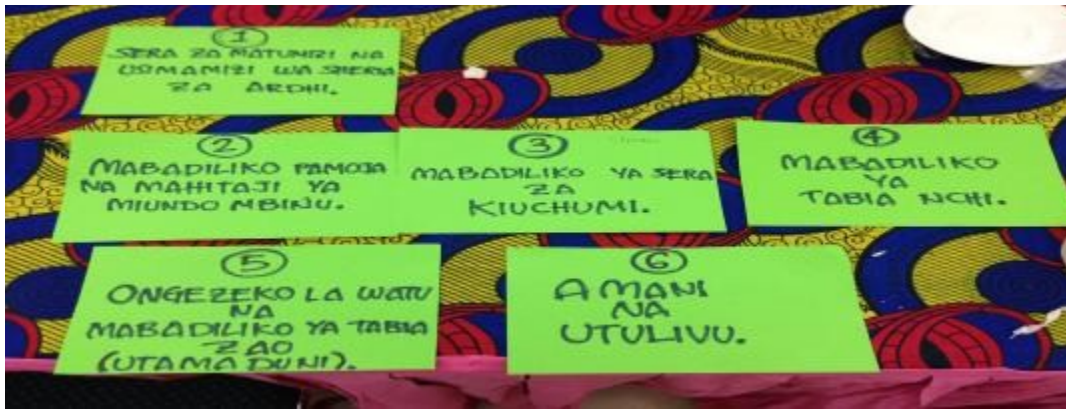 1
SERA ZA MATUMIZI NA
USIMAMIZI WA SHERIA
ZA ARDHI.
2
MABADILIKO PAMOJA
NA MAHITAJI YA
MIUNDO MBINU.
3
MABADILIKO YA SERA
ZA
KIUCHUMI.
4
MABADILIKO
YA
TABIA NCHI.
5
ONGEZEKO LA WATU
NA
MABADILIKO YA TABIA
ZAO
(UTAMADUNI).
6
AMANI
NA
UTULIVU.